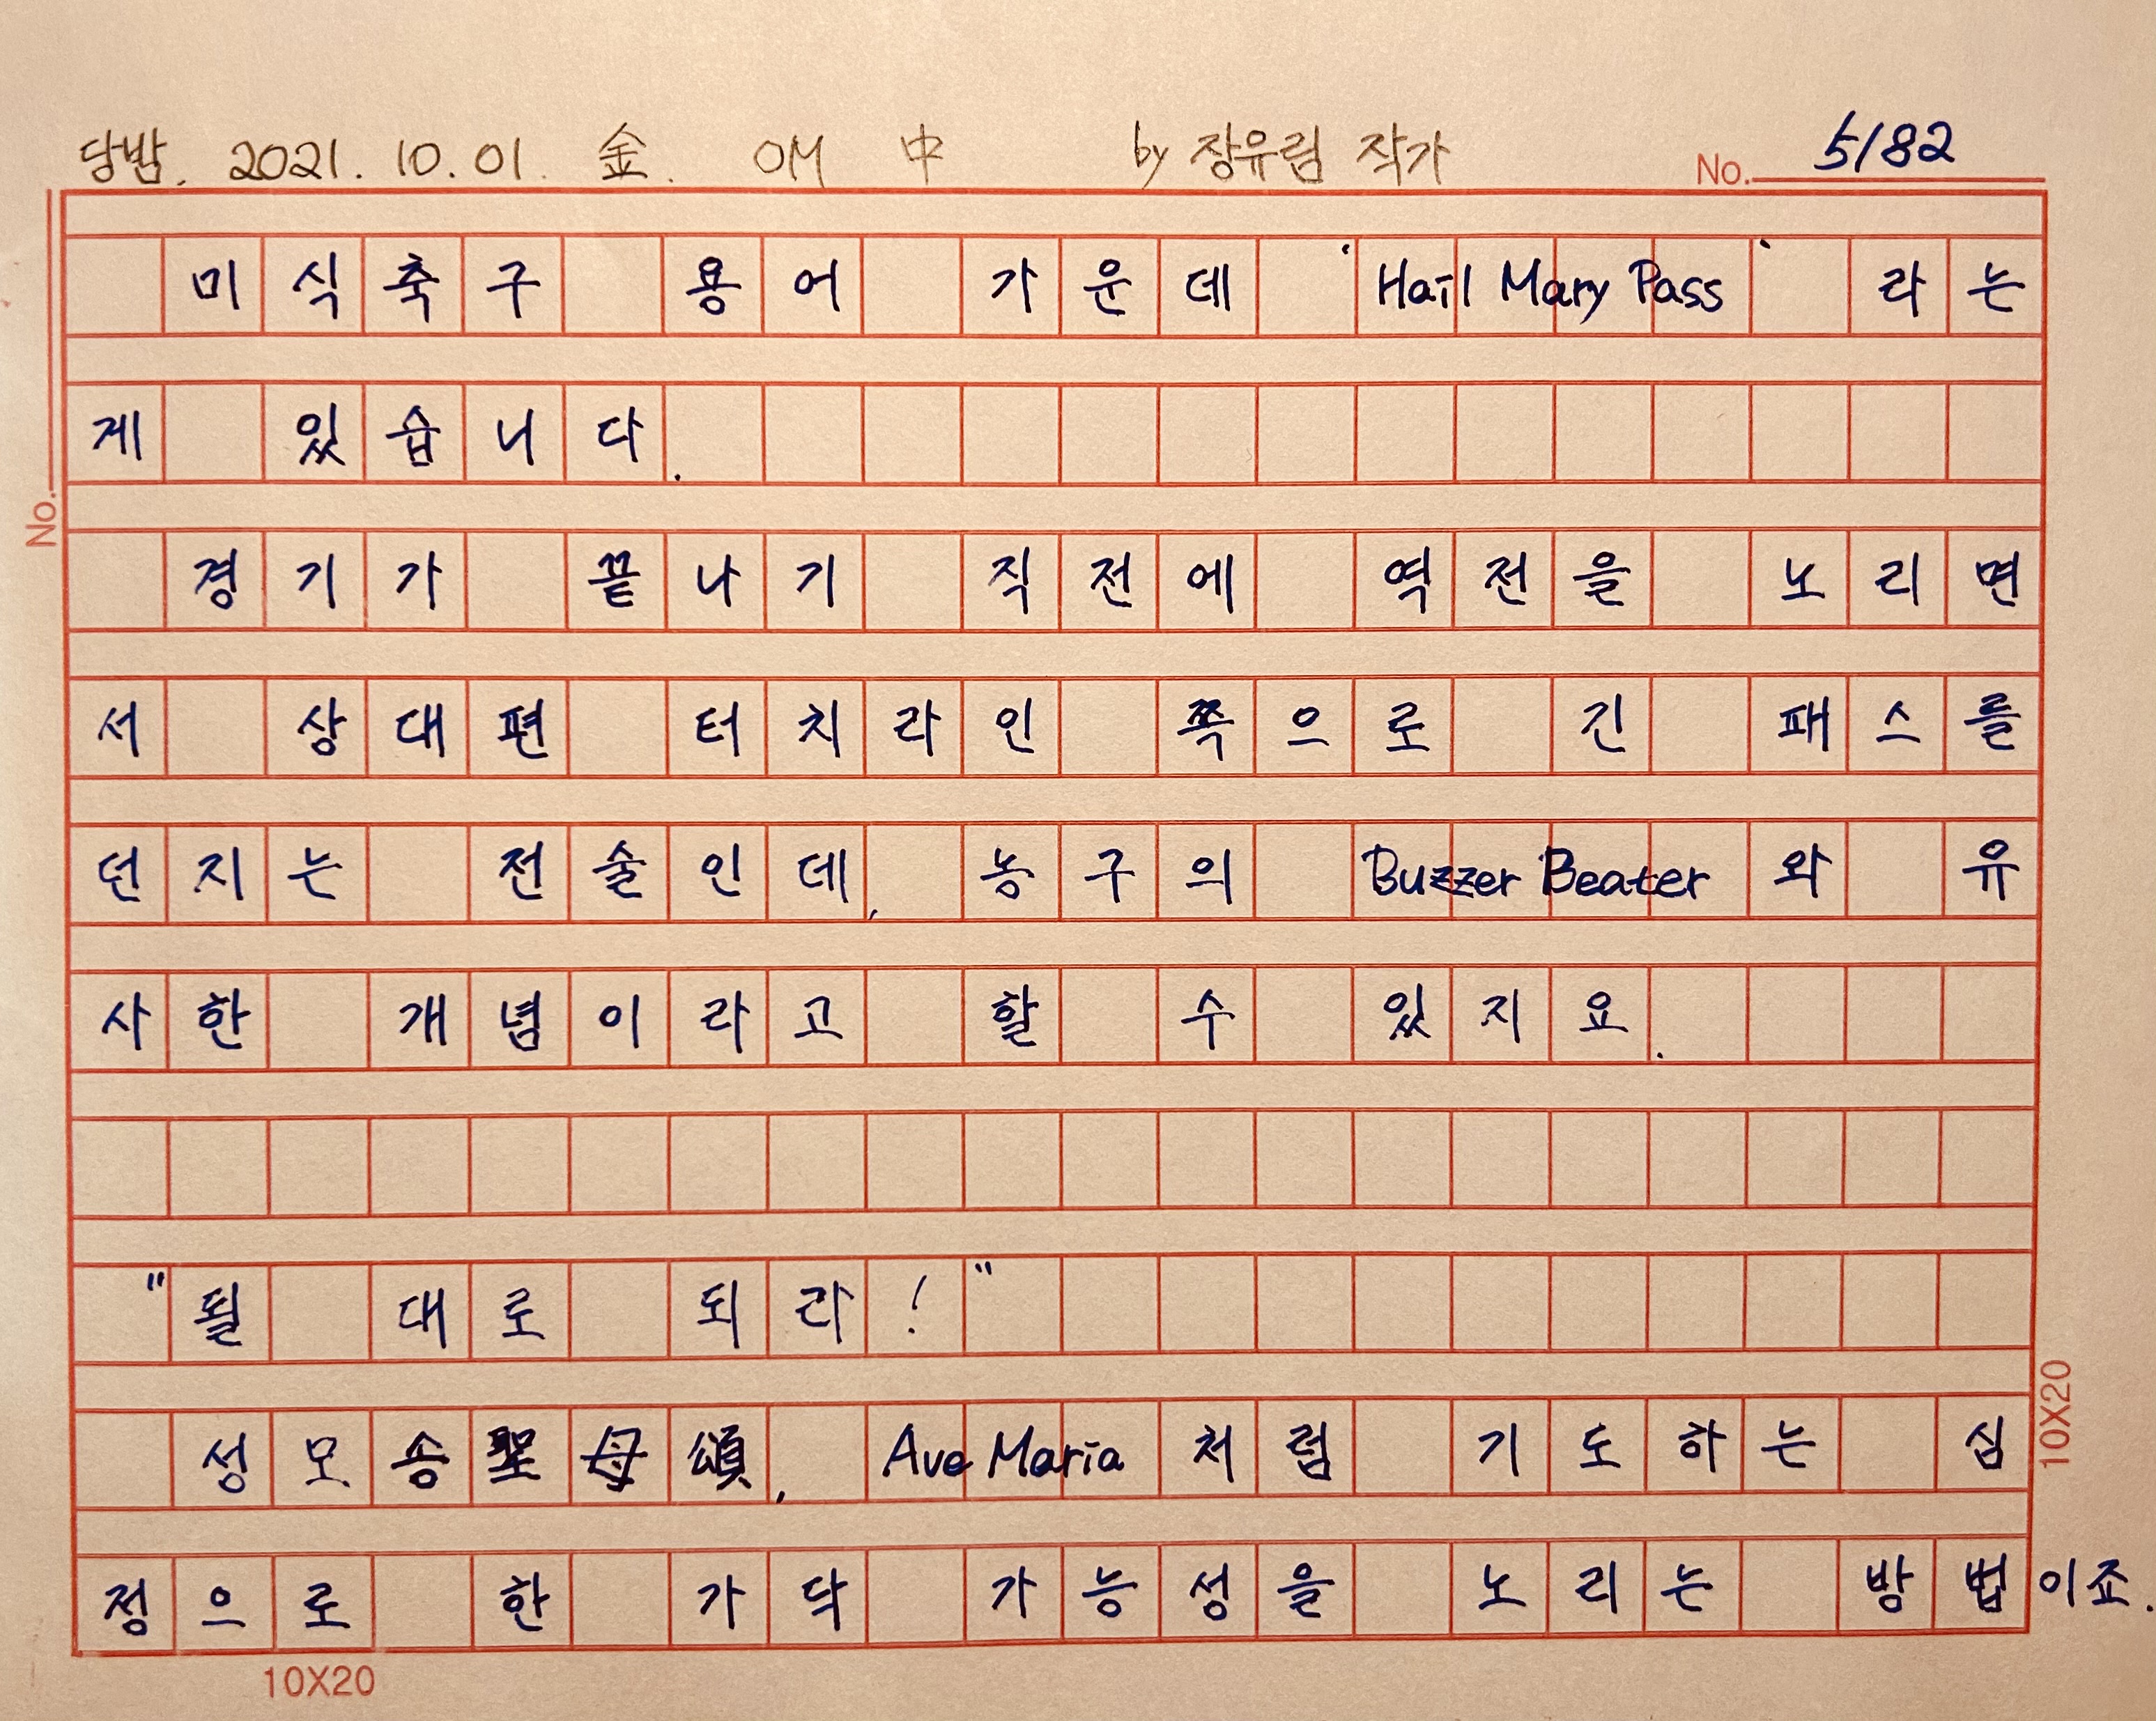 당밤. 2021. 10. 01. 金. OM 中 by 장유림 작가 No. 5182
미식축구 용어 가운데 'Hail Mary Pass' 라는
게 있습니다.
No.
경기가 끝나기 직전에 역전을 노리면
서 상대편 터치라인 쪽으로 긴 패스를
던지는 전술인데, 농구의 Buzzer Beater 와 유
사한 개념이라고 할 수 있지요.
"될 대로 되라!"
성모송聖母頌, Ave Maria 처럼 기도하는 심
정으로 한 가닥 가능성을 노리는 방법이죠.
10X20
10X20